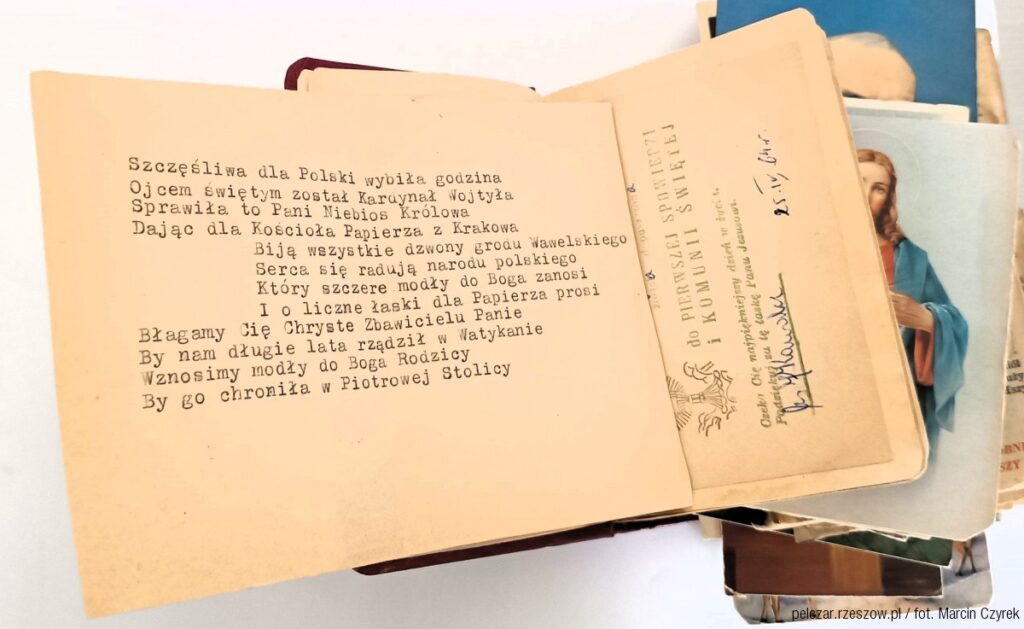 Szczęśliwa dla Polski wybiła godzina
Ojcem świętym został Kardynał Wojtyła
Sprawiła to Pani Niebios Królowa
Dając dla Kościoła Papierza z Krakowa
Biją wszystkie dzwony grodu Wawelskiego
Serca się radują narodu polskiego
Który szczere modły do Boga zanosi
I o liczne łaski dla Papierza prosi
Błagamy Cię Chryste Zbawicielu Panie
By nam długie lata rządził w Watykanie
Wznosimy modły do Boga Rodzicy
By go chroniła w Piotrowej Stolicy
do PIERWSZEJ SPOWIEDZI
i KOMUNII ŚWIĘTEJ
Czeka Cię najpiękniejszy dzień w życiu.
Podziękuj za tę łaskę Panu Jezusowi.
25 IV 64 r.
pelczar.rzeszow.pl / fot. Marcin Czyrek